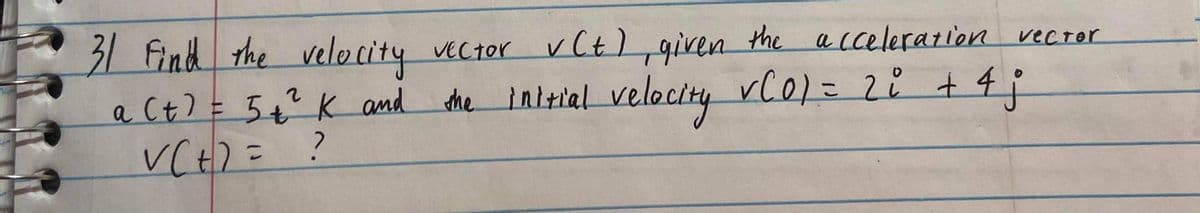 3/ Find the velocity vector v(t), given the acceleration vector
a(t) = 5t² K and the initial velocity v(0) = 2i + 4j
v(t) = ?